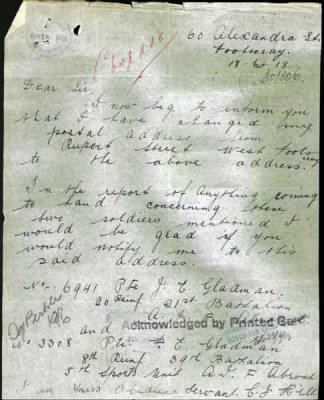 60 Alexandra St.
Footscray.
18-6-18
Dear Sir
I now beg to inform you
that I have changed my
postal address from
Rupert Street West Footscray
to the above address.
In the report of Anything coming
to hand concerning these
two soldiers mentioned I
would be glad if you
would notify me to this
said address.
No. 6941 Pte J. E. Gladman.
20 Reinf 21st Battalion
A. I. F.
Acknowledged by Printed Card.
and
No 3308 Pte E. Gladman
8th Reinf 39th Battalion
5th Sports Unit A.I.F Abroad
I am Yours Obedient Servant. C. J. Hill